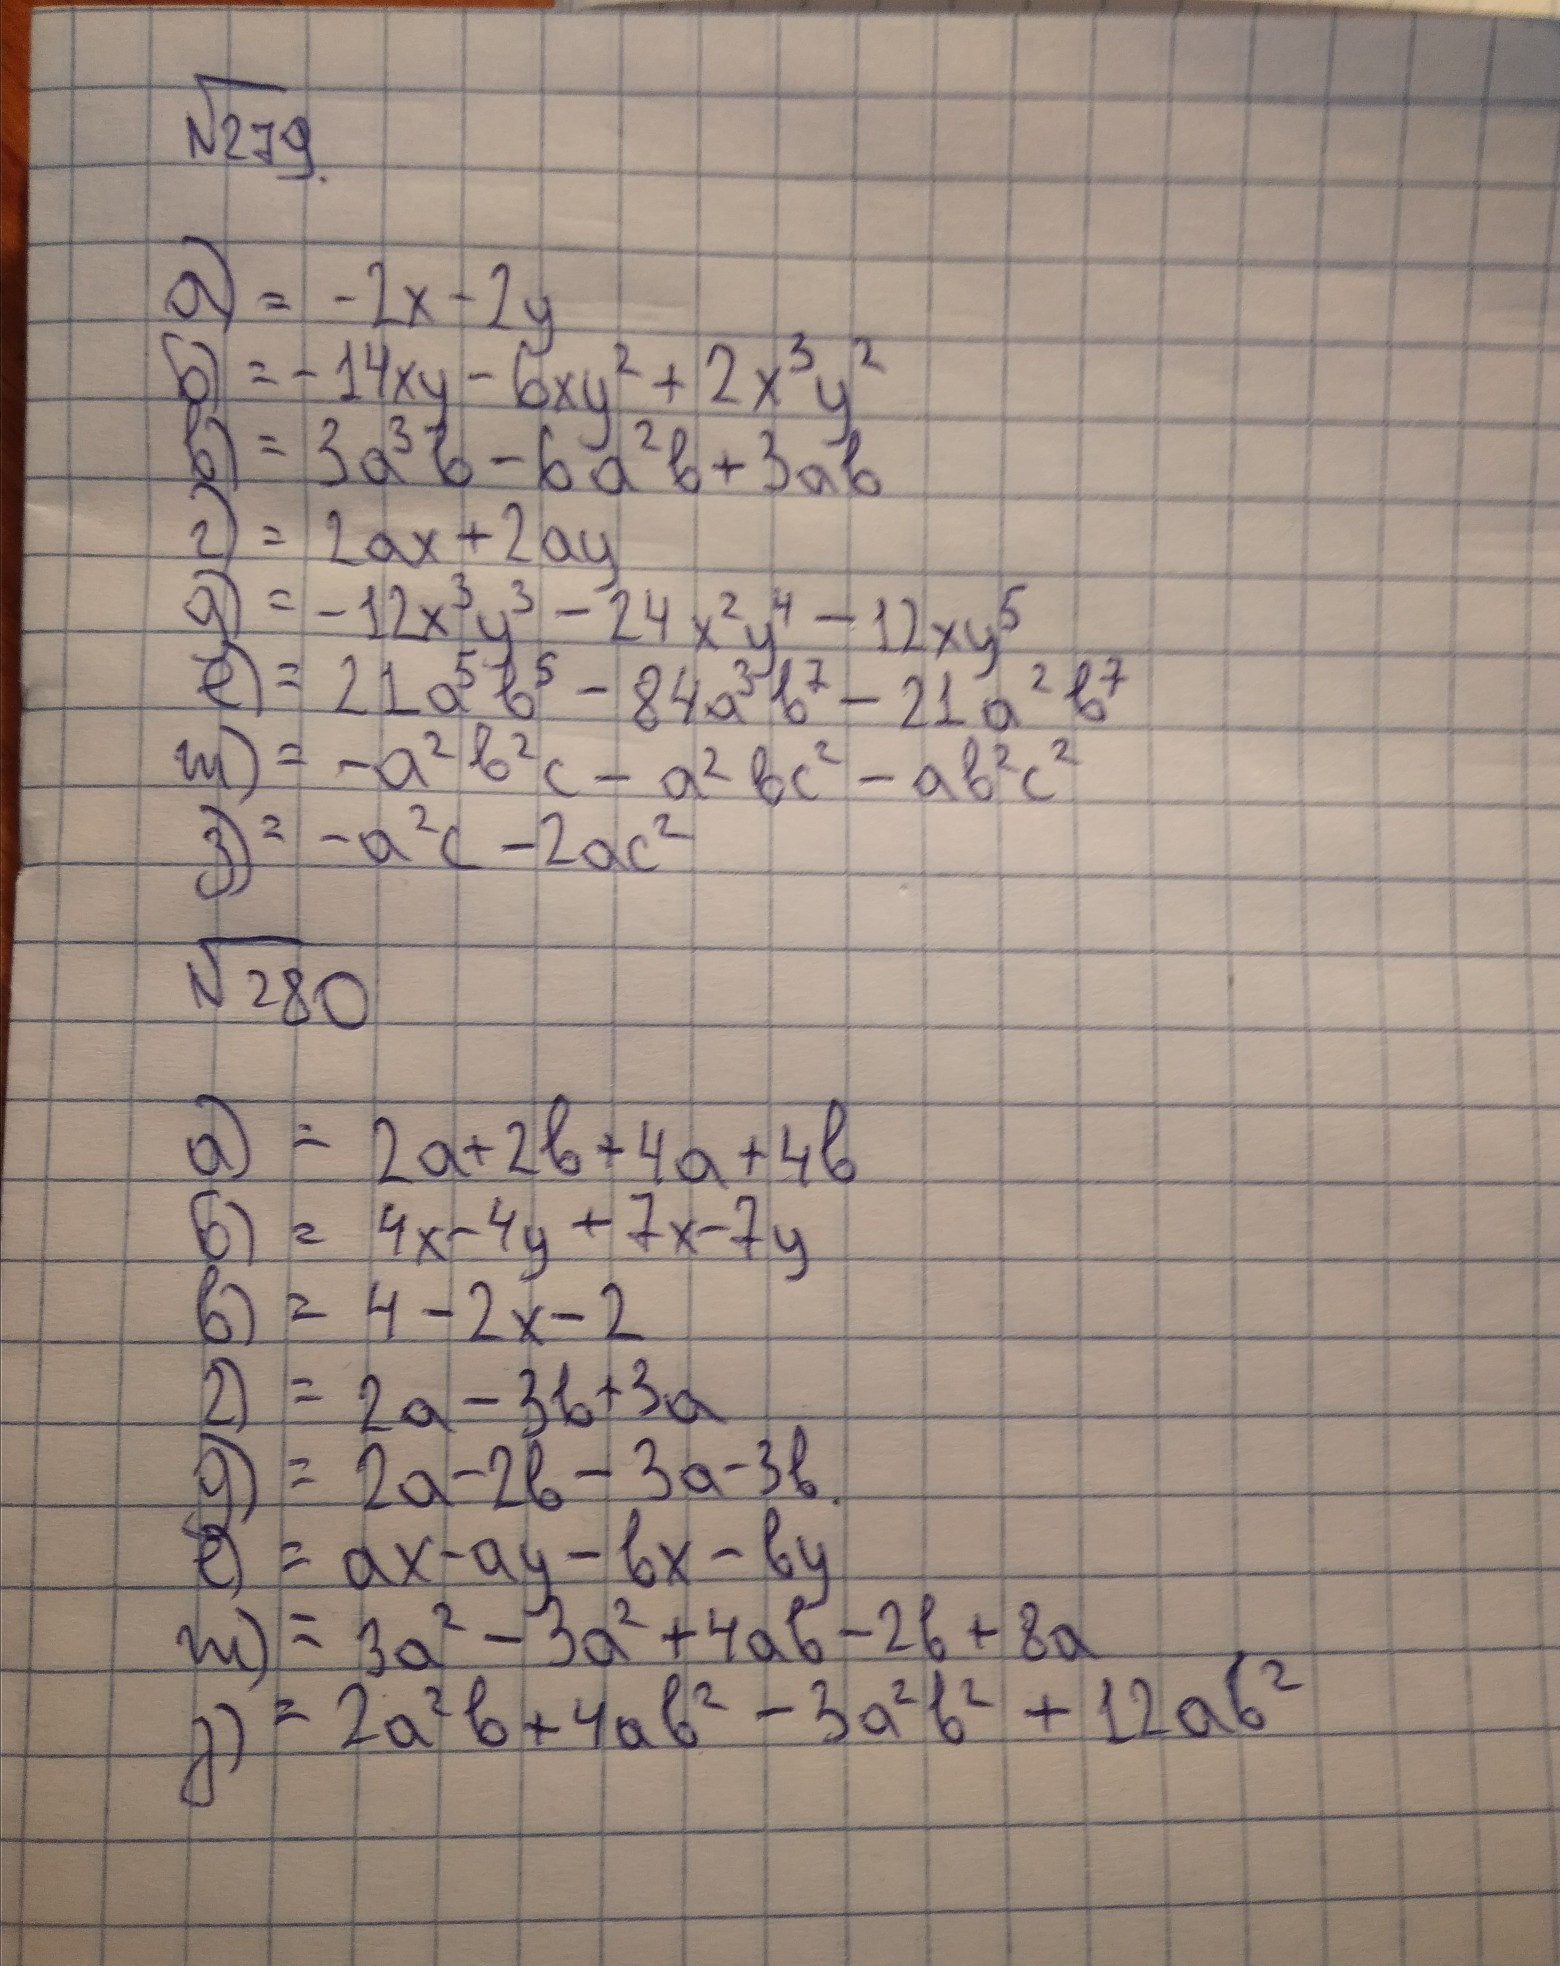 √279.
а) = -2x - 2y
б) = -14xy - 6xy² + 2x³y²
в) = 3a³b - 6a²b + 3ab
г) = 2ax + 2ay
д) = -12x³y³ - 24x²y⁴ - 12xy⁵
е) = 21a⁵b⁵ - 84a³b⁷ - 21a²b⁷
ж) = -a²b²c - a²bc² - ab²c²
з) = -a²c - 2ac²
√280
а) = 2a + 2b + 4a + 4b
б) = 4x - 4y + 7x - 7y
в) = 4 - 2x - 2
г) = 2a - 3b + 3a
д) = 2a - 2b - 3a - 3b.
е) = ax - ay - bx - by
ж) = 3a² - 3a² + 4ab - 2b + 8a
з) = 2a²b + 4ab² - 3a²b² + 12ab²